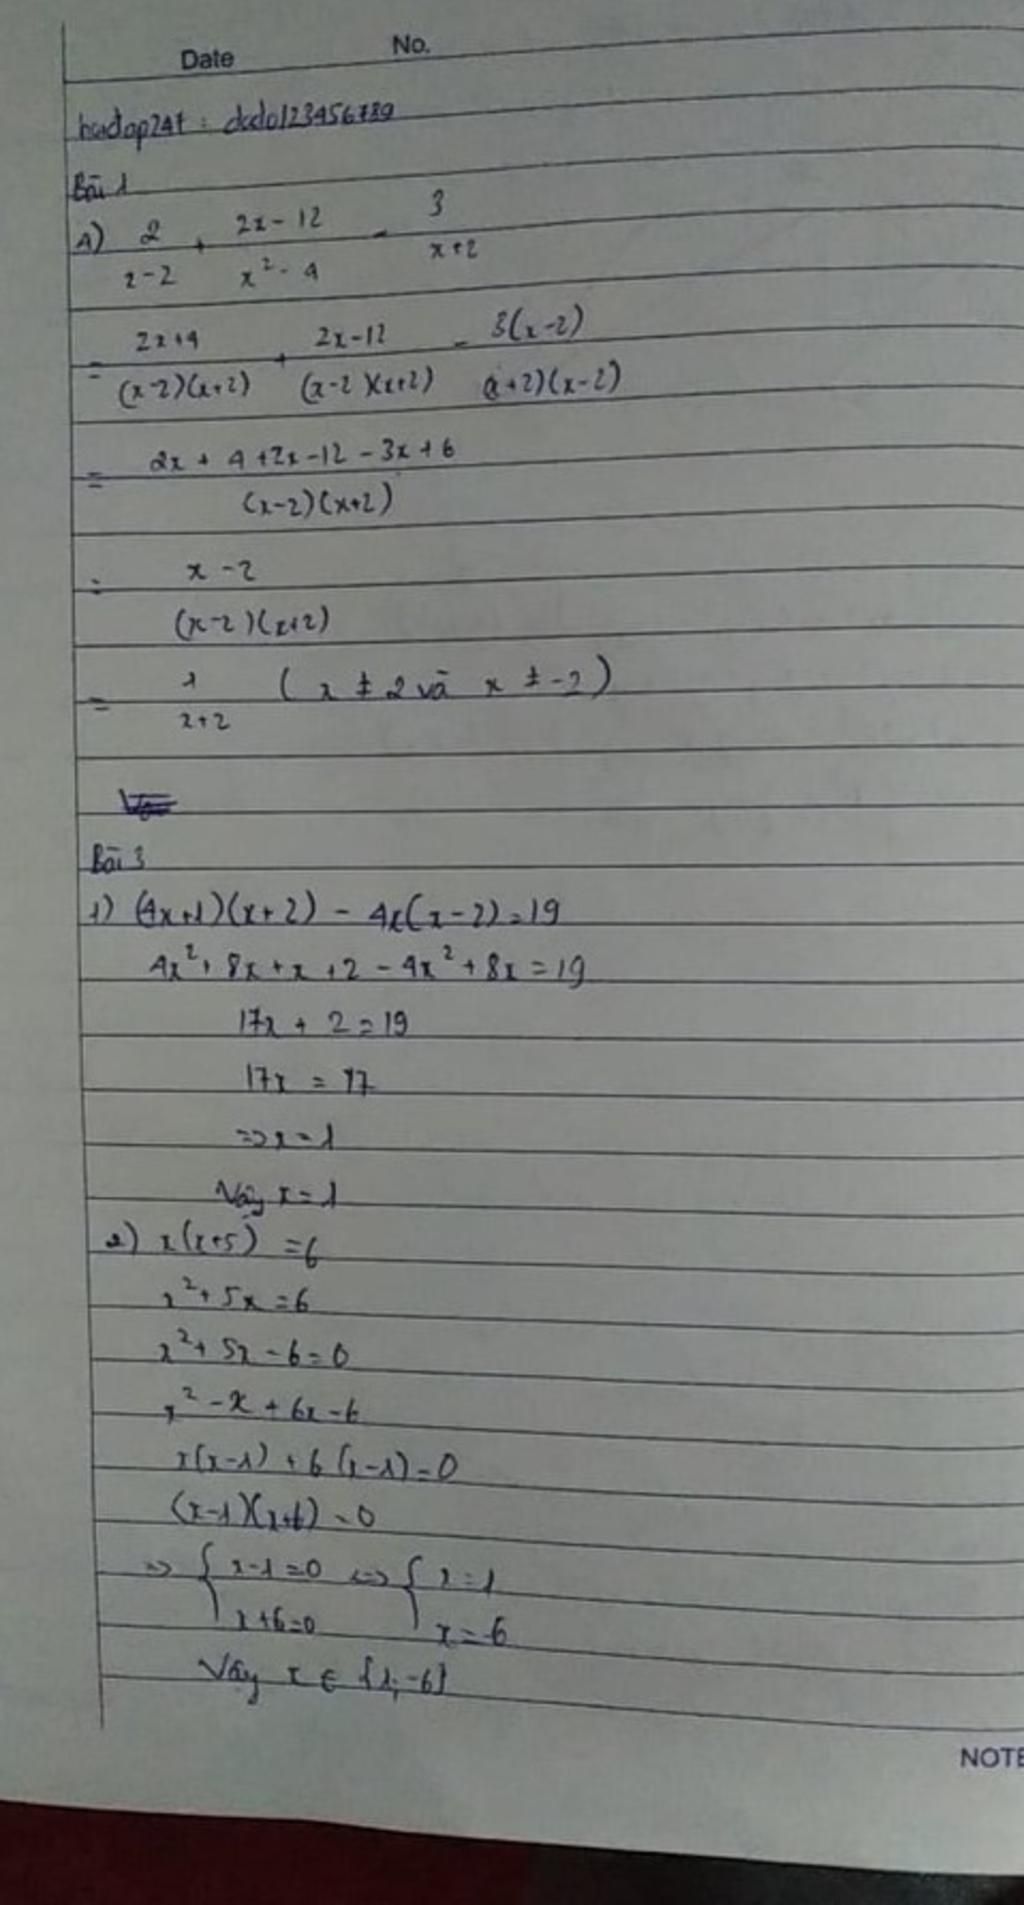 Date No.
hoidap247 : dcdo123456789
Bài 1
A) 2/(x-2) + (2x-12)/(x²-4) - 3/(x+2)
= (2x+4)/((x-2)(x+2)) + (2x-12)/((x-2)(x+2)) - 3(x-2)/((x+2)(x-2))
= (2x + 4 + 2x - 12 - 3x + 6)/((x-2)(x+2))
= (x-2)/((x-2)(x+2))
= 1/(x+2) (x ≠ 2 và x ≠ -2)
Bài 3
1) (4x+1)(x+2) - 4x(x-2) = 19
4x² + 8x + x + 2 - 4x² + 8x = 19
17x + 2 = 19
17x = 17
=> x = 1
Vậy x = 1
2) x(x+5) = 6
x² + 5x = 6
x² + 5x - 6 = 0
x² - x + 6x - 6
x(x-1) + 6(x-1) = 0
(x-1)(x+6) = 0
=> { x-1=0 <=> { x=1
x+6=0 x=-6
Vậy x ∈ {1; -6}
NOTE